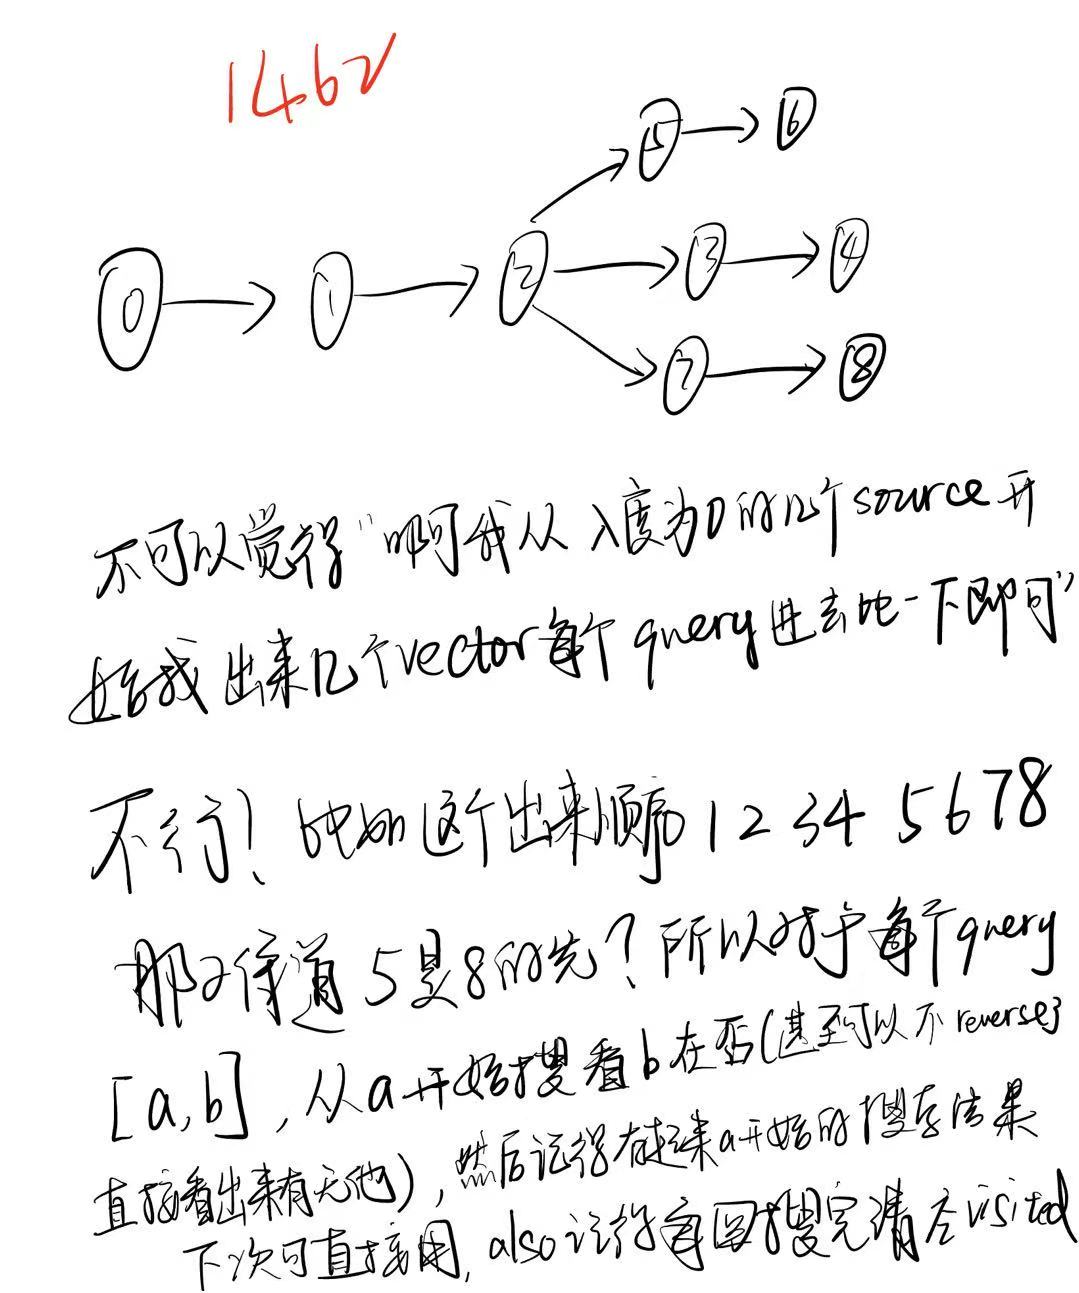 1462
5 6
0 1 2 3 4
7 8
不可以觉得“啊我从入度为0的几个source开
始找出来几个vector每个query进去比一下即可”
不行！比如这个出来顺序0 1 2 3 4 5 6 7 8
那难道5是8的先？所以对于每个query
[a,b]，从a开始搜看b在否(甚至可以不reverse
直接看出来有无他)，然后记得存起来a开始的搜存结果
下次可直接用，also记得每回搜完清空visited